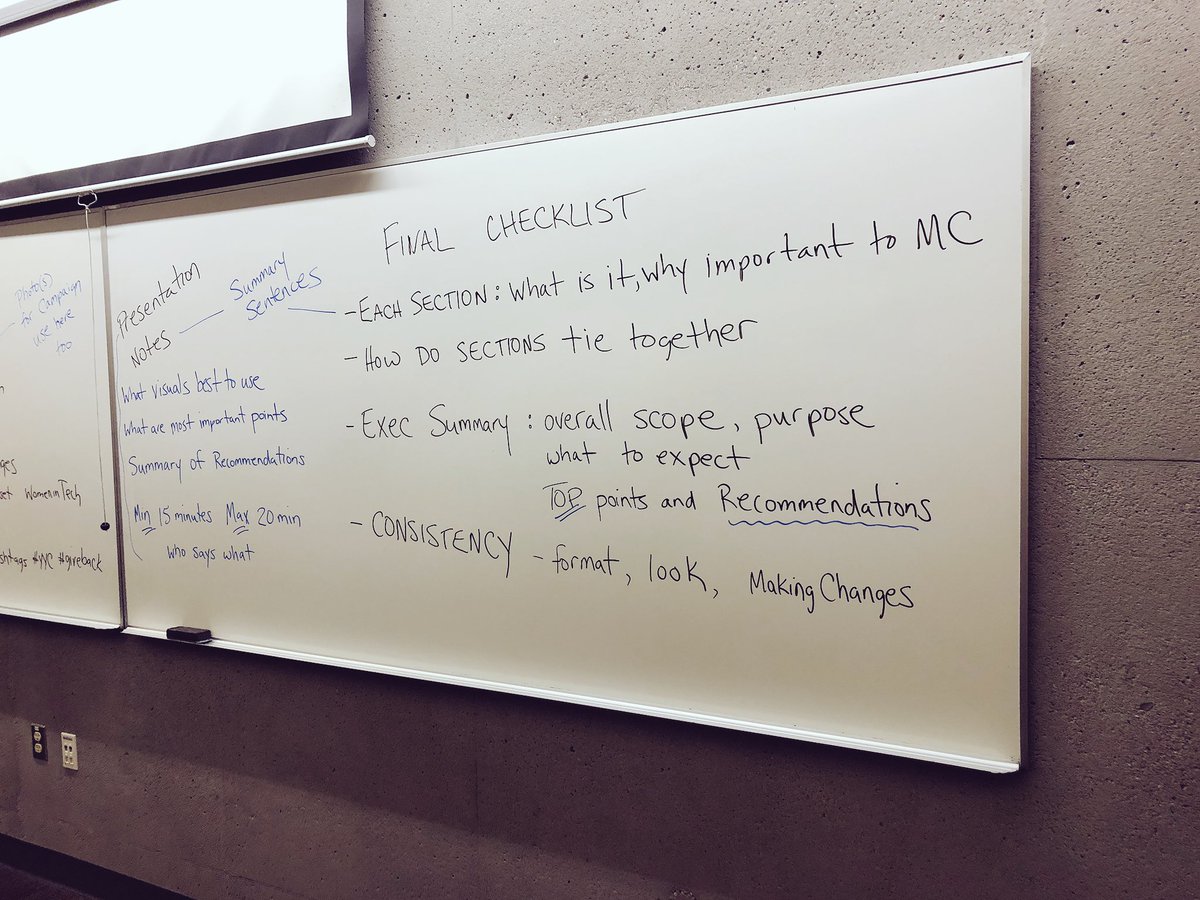 Photo(s)
for Campaign
use here
too
Women in Tech
#YYC #giveback
Presentation
Notes
Summary
Sentences
What visuals best to use
What are most important points
Summary of Recommendations
Min 15 minutes Max 20 min
who says what
FINAL CHECKLIST
- EACH SECTION: What is it, why important to MC
- HOW DO SECTIONS tie together
- Exec Summary: overall scope, purpose
what to expect
TOP points and Recommendations
- CONSISTENCY - format, look, Making Changes